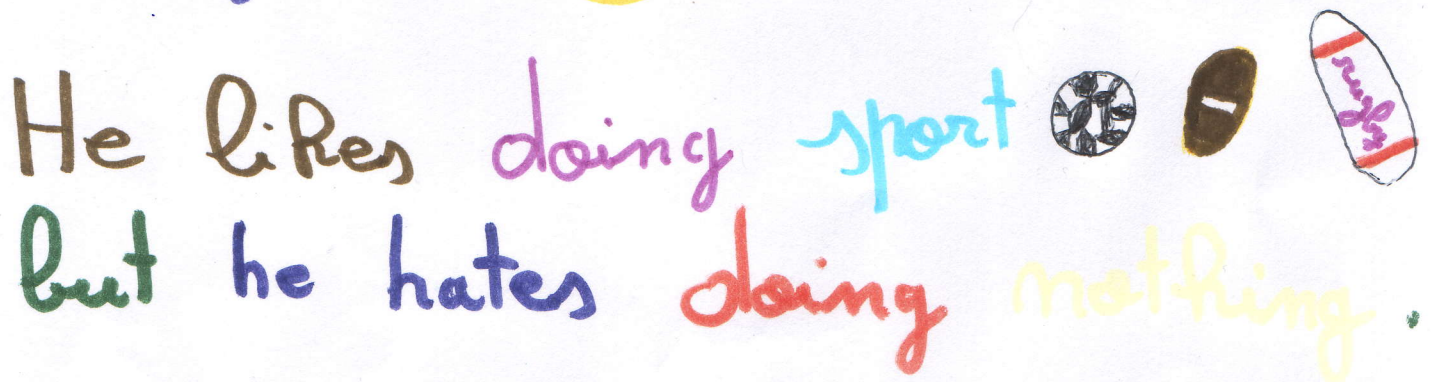 He likes doing sport
but he hates doing nothing.